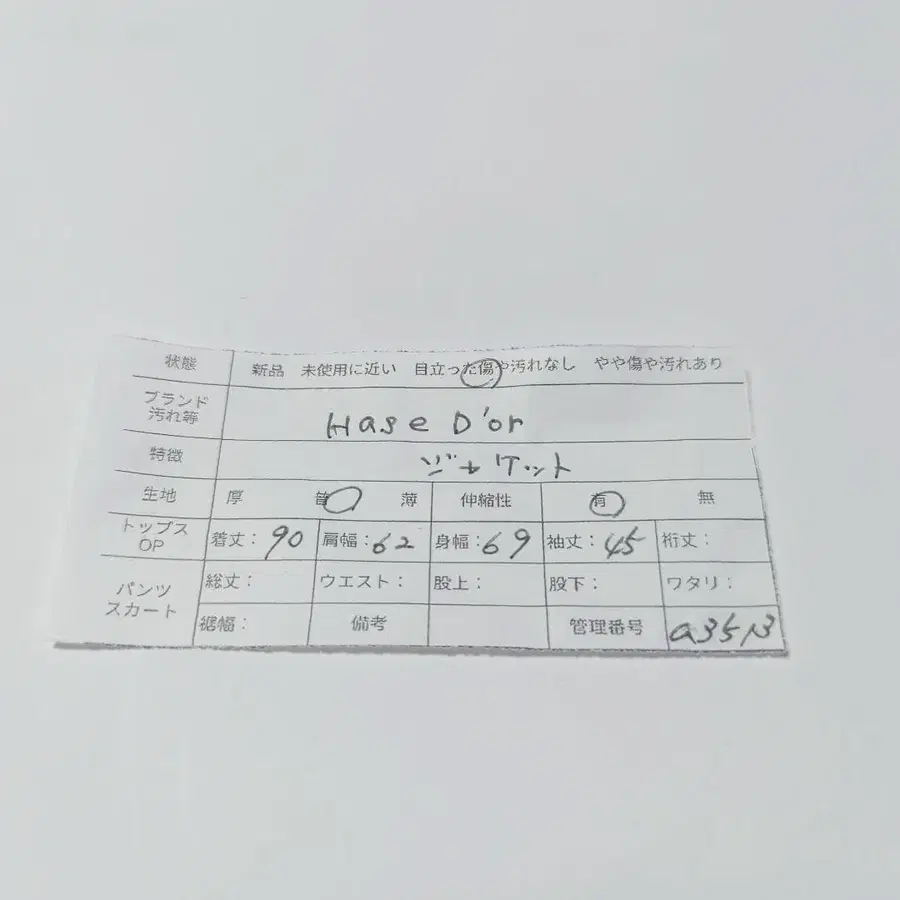 状態 新品 未使用に近い 目立った傷や汚れなし やや傷や汚れあり
ブランド
汚れ等
Hase D'or
特徴 ジャケット
生地 厚 普 薄 伸縮性 有 無
トップス
OP
着丈：90 肩幅：62 身幅：69 袖丈：45 裄丈：
パンツ
スカート
総丈： ウエスト： 股上： 股下： ワタリ：
裾幅： 備考 管理番号 a3513